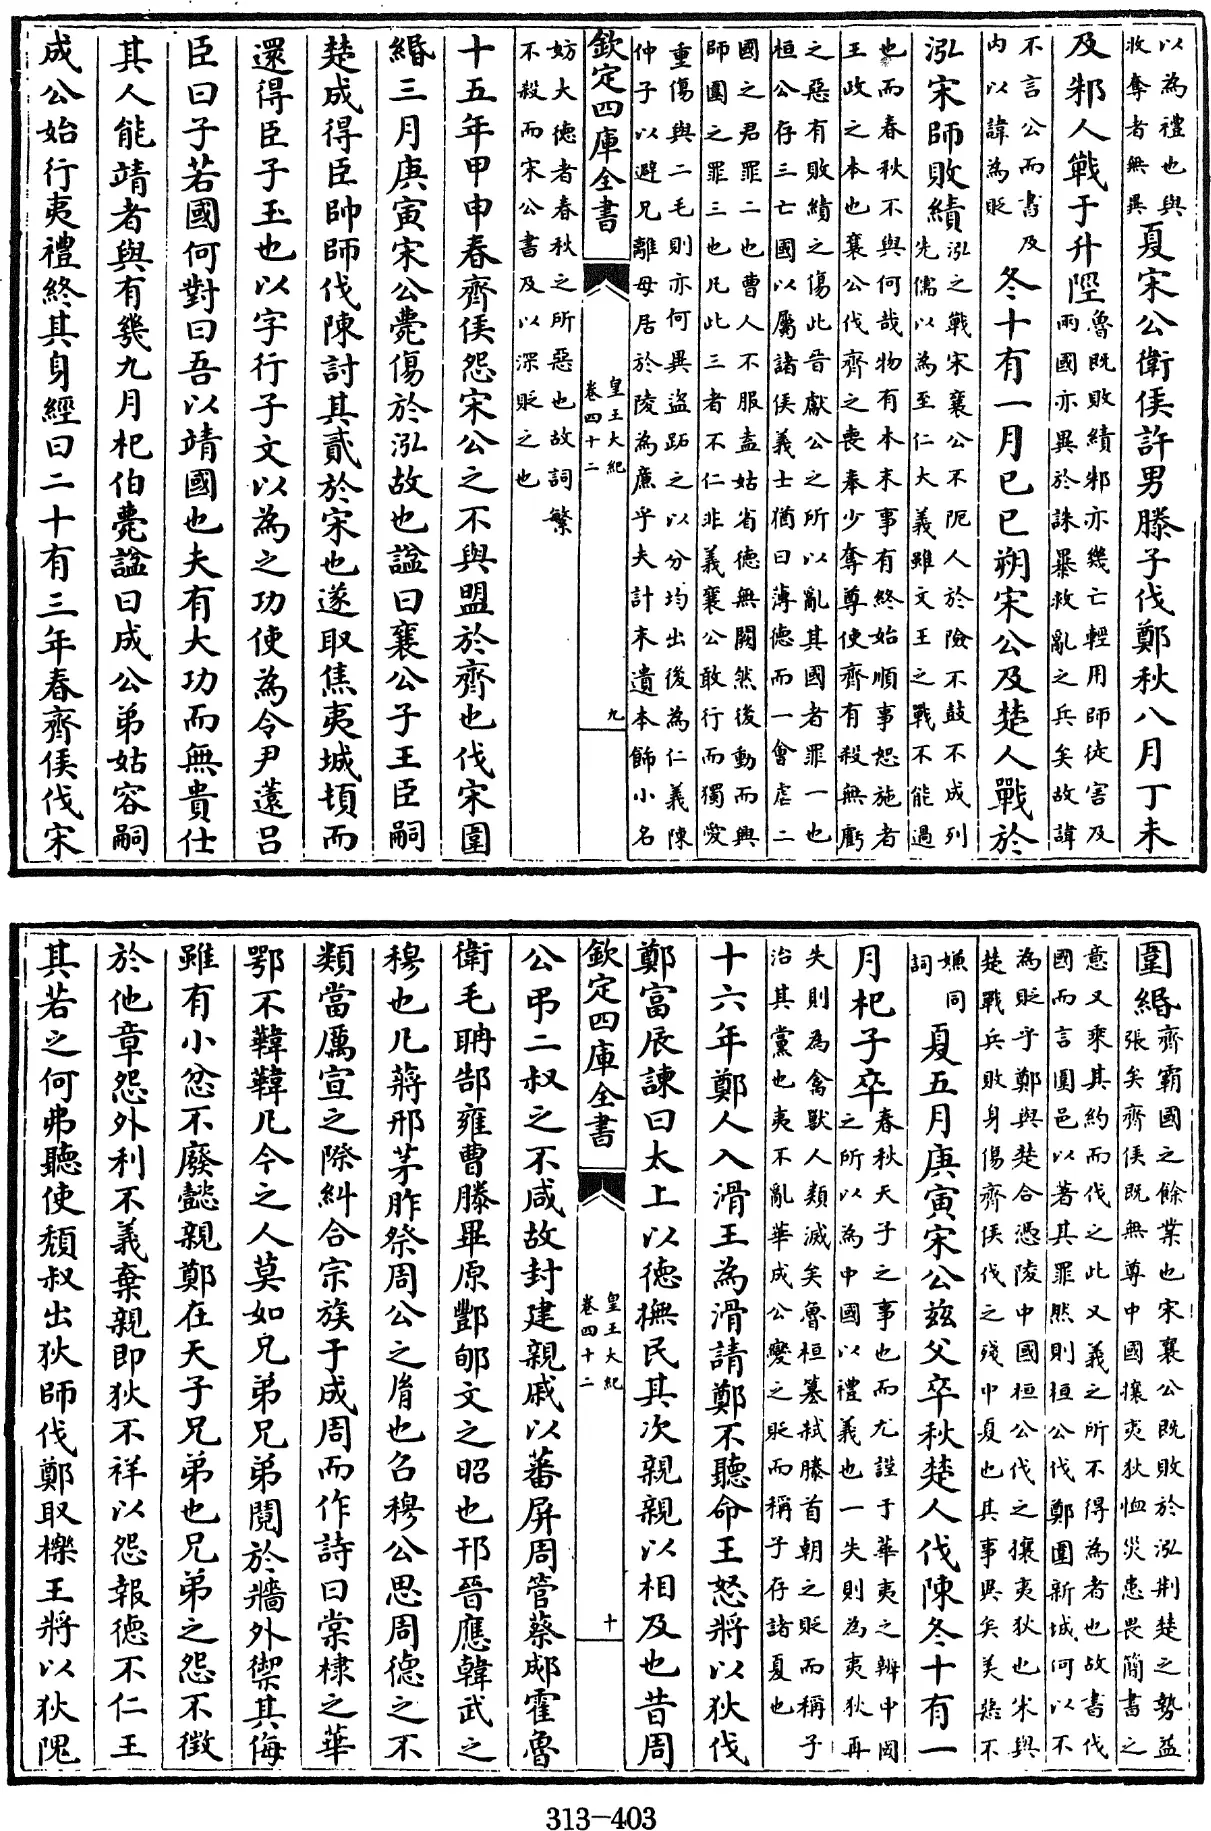 以為禮也與
收奪者無異
夏宋公衛侯許男滕子伐鄭秋八月丁未
及邾人戰于升陘
魯既敗績邾亦幾亡輕用師徒害及
兩國亦異於誅暴救亂之兵矣故諱
不言公而書及
内以諱為貶
冬十有一月已已朔宋公及楚人戰於
泓宋師敗績
泓之戰宋襄公不阨人於險不鼓不成列
先儒以為至仁大義雖文王之戰不能過
也而春秋不與何哉物有本末事有終始順事恕施者
王政之本也襄公伐齊之喪奉少奪尊使齊有殺無虧
之惡有敗績之傷此晉獻公之所以亂其國者罪一也
桓公存三亡國以屬諸侯義士猶曰薄德而一會虐二
國之君罪二也曹人不服盍姑省德無闕然後動而興
師圍之罪三也凡此三者不仁非義襄公敢行而獨愛
重傷與二毛則亦何異盜跖之以分均出後為仁義陳
仲子以避兄離母居於陵為廉乎夫計末遺本飾小名
欽定四庫全書
皇王大紀
卷四十二
九
妨大德者春秋之所惡也故詞繁
不殺而宋公書及以深貶之也
十五年甲申春齊侯怨宋公之不與盟於齊也伐宋圍
緡三月庚寅宋公薨傷於泓故也諡曰襄公子王臣嗣
楚成得臣帥師伐陳討其貳於宋也遂取焦夷城頓而
還得臣子玉也以字行子文以為之功使為令尹薳呂
臣曰子若國何對曰吾以靖國也夫有大功而無貴仕
其人能靖者與有幾九月杞伯薨諡曰成公弟姑容嗣
成公始行夷禮終其身經曰二十有三年春齊侯伐宋
圍緡
齊霸國之餘業也宋襄公既敗於泓荆楚之勢益
張矣齊侯既無尊中國攘夷狄恤災患畏簡書之
意又乘其約而伐之此又義之所不得為者也故書伐
國而言圍邑以著其罪然則桓公伐鄭圍新城何以不
為貶乎鄭與楚合憑陵中國桓公伐之攘夷狄也宋與
楚戰兵敗身傷齊侯伐之殘中夏也其事異矣美惡不
嫌同
詞
夏五月庚寅宋公兹父卒秋楚人伐陳冬十有一
月杞子卒
春秋天子之事也而尤謹于華夷之辨中國
之所以為中國以禮義也一失則為夷狄再
失則為禽獸人類滅矣魯桓篡弑滕首朝之貶而稱子
治其黨也夷不亂華成公變之貶而稱子存諸夏也
十六年鄭人入滑王為滑請鄭不聽命王怒將以狄伐
鄭富辰諫曰太上以德撫民其次親親以相及也昔周
欽定四庫全書
皇王大紀
卷四十二
十
公弔二叔之不咸故封建親戚以蕃屏周管蔡郕霍魯
衛毛聃郜雍曹滕畢原酆郇文之昭也邘晉應韓武之
穆也凡蔣邢茅胙祭周公之胤也召穆公思周德之不
類當厲宣之際糾合宗族于成周而作詩曰棠棣之華
鄂不韡韡凡今之人莫如兄弟兄弟鬩於牆外禦其侮
雖有小忿不廢懿親鄭在天子兄弟也兄弟之怨不徵
於他章怨外利不義棄親即狄不祥以怨報德不仁王
其若之何弗聽使頹叔出狄師伐鄭取櫟王將以狄隗
313-403